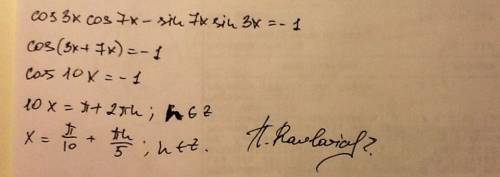 cos3x cos7x - sin7x sin3x = -1
cos(3x+7x) = -1
cos10x = -1
10x = π + 2πn; n∈Z
x = π/10 + πn/5; n∈Z.